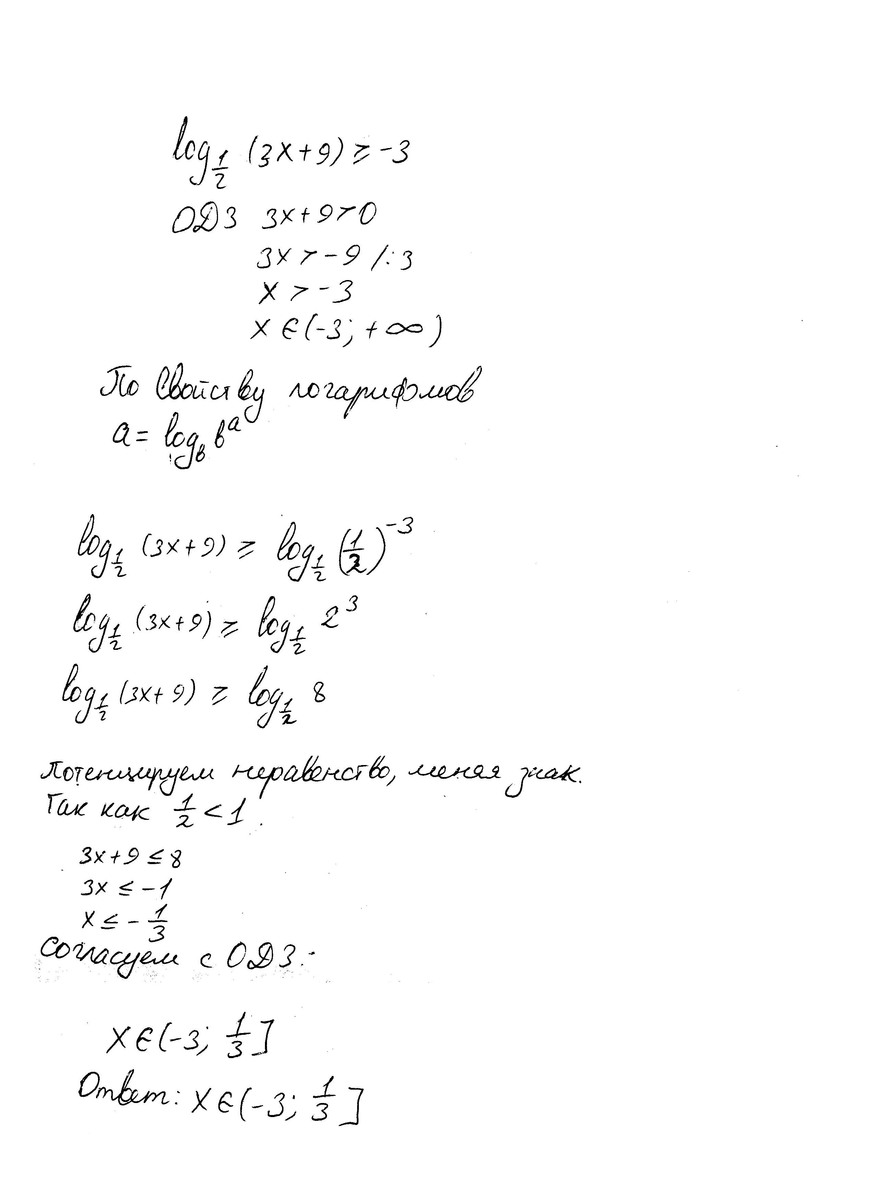 log_{1/2} (3x+9) ≥ -3
ОДЗ 3x+9>0
3x > -9 /:3
x > -3
x ∈ (-3; +∞)
По Свойству логарифмов
a = log_b b^a
log_{1/2} (3x+9) ≥ log_{1/2} (1/2)^{-3}
log_{1/2} (3x+9) ≥ log_{1/2} 2^3
log_{1/2} (3x+9) ≥ log_{1/2} 8
Потенцируем неравенство, меняя знак.
Так как 1/2 < 1.
3x+9 ≤ 8
3x ≤ -1
x ≤ - 1/3
Согласуем с ОДЗ:
x ∈ (-3; 1/3]
Ответ: x ∈ (-3; 1/3]